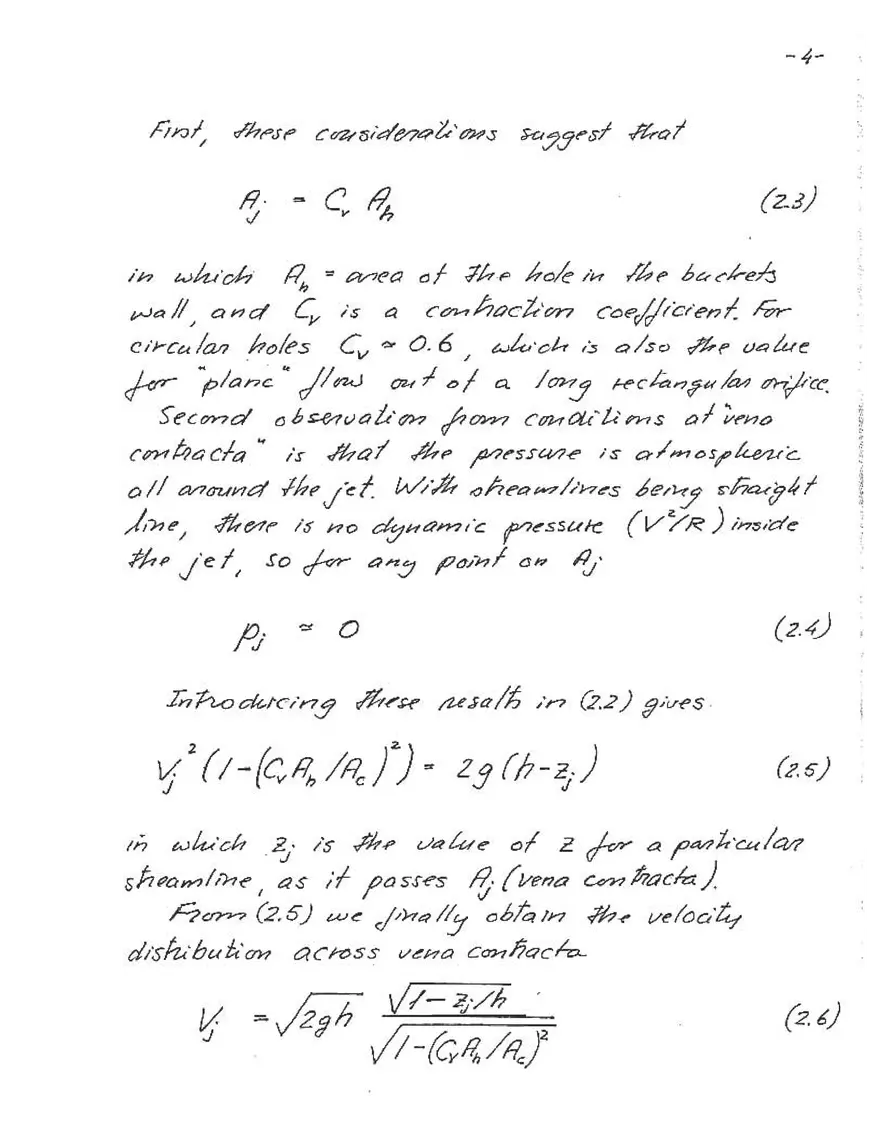 -4-
First, these considerations suggest that
A_j = C_v A_h (2.3)
in which A_h = area of the hole in the buckets
wall, and C_v is a contraction coefficient. For
circular holes C_v ≃ 0.6, which is also the value
for "plane" flow out of a long rectangular orifice.
Second observation from conditions at "vena
contracta" is that the pressure is atmospheric
all around the jet. With streamlines being straight
line, there is no dynamic pressure (V²/R) inside
the jet, so for any point on A_j
p_j ≃ 0 (2.4)
Introducing these results in (2.2) gives.
V_j² (1-(C_v A_h /A_c)²) = 2g(h-z_j) (2.5)
in which z_j is the value of z for a particular
streamline, as it passes A_j (vena contracta).
From (2.5) we finally obtain the velocity
distribution across vena contracta
V_j = √2gh √1-z_j/h / √1-(C_v A_h/A_c)² (2.6)